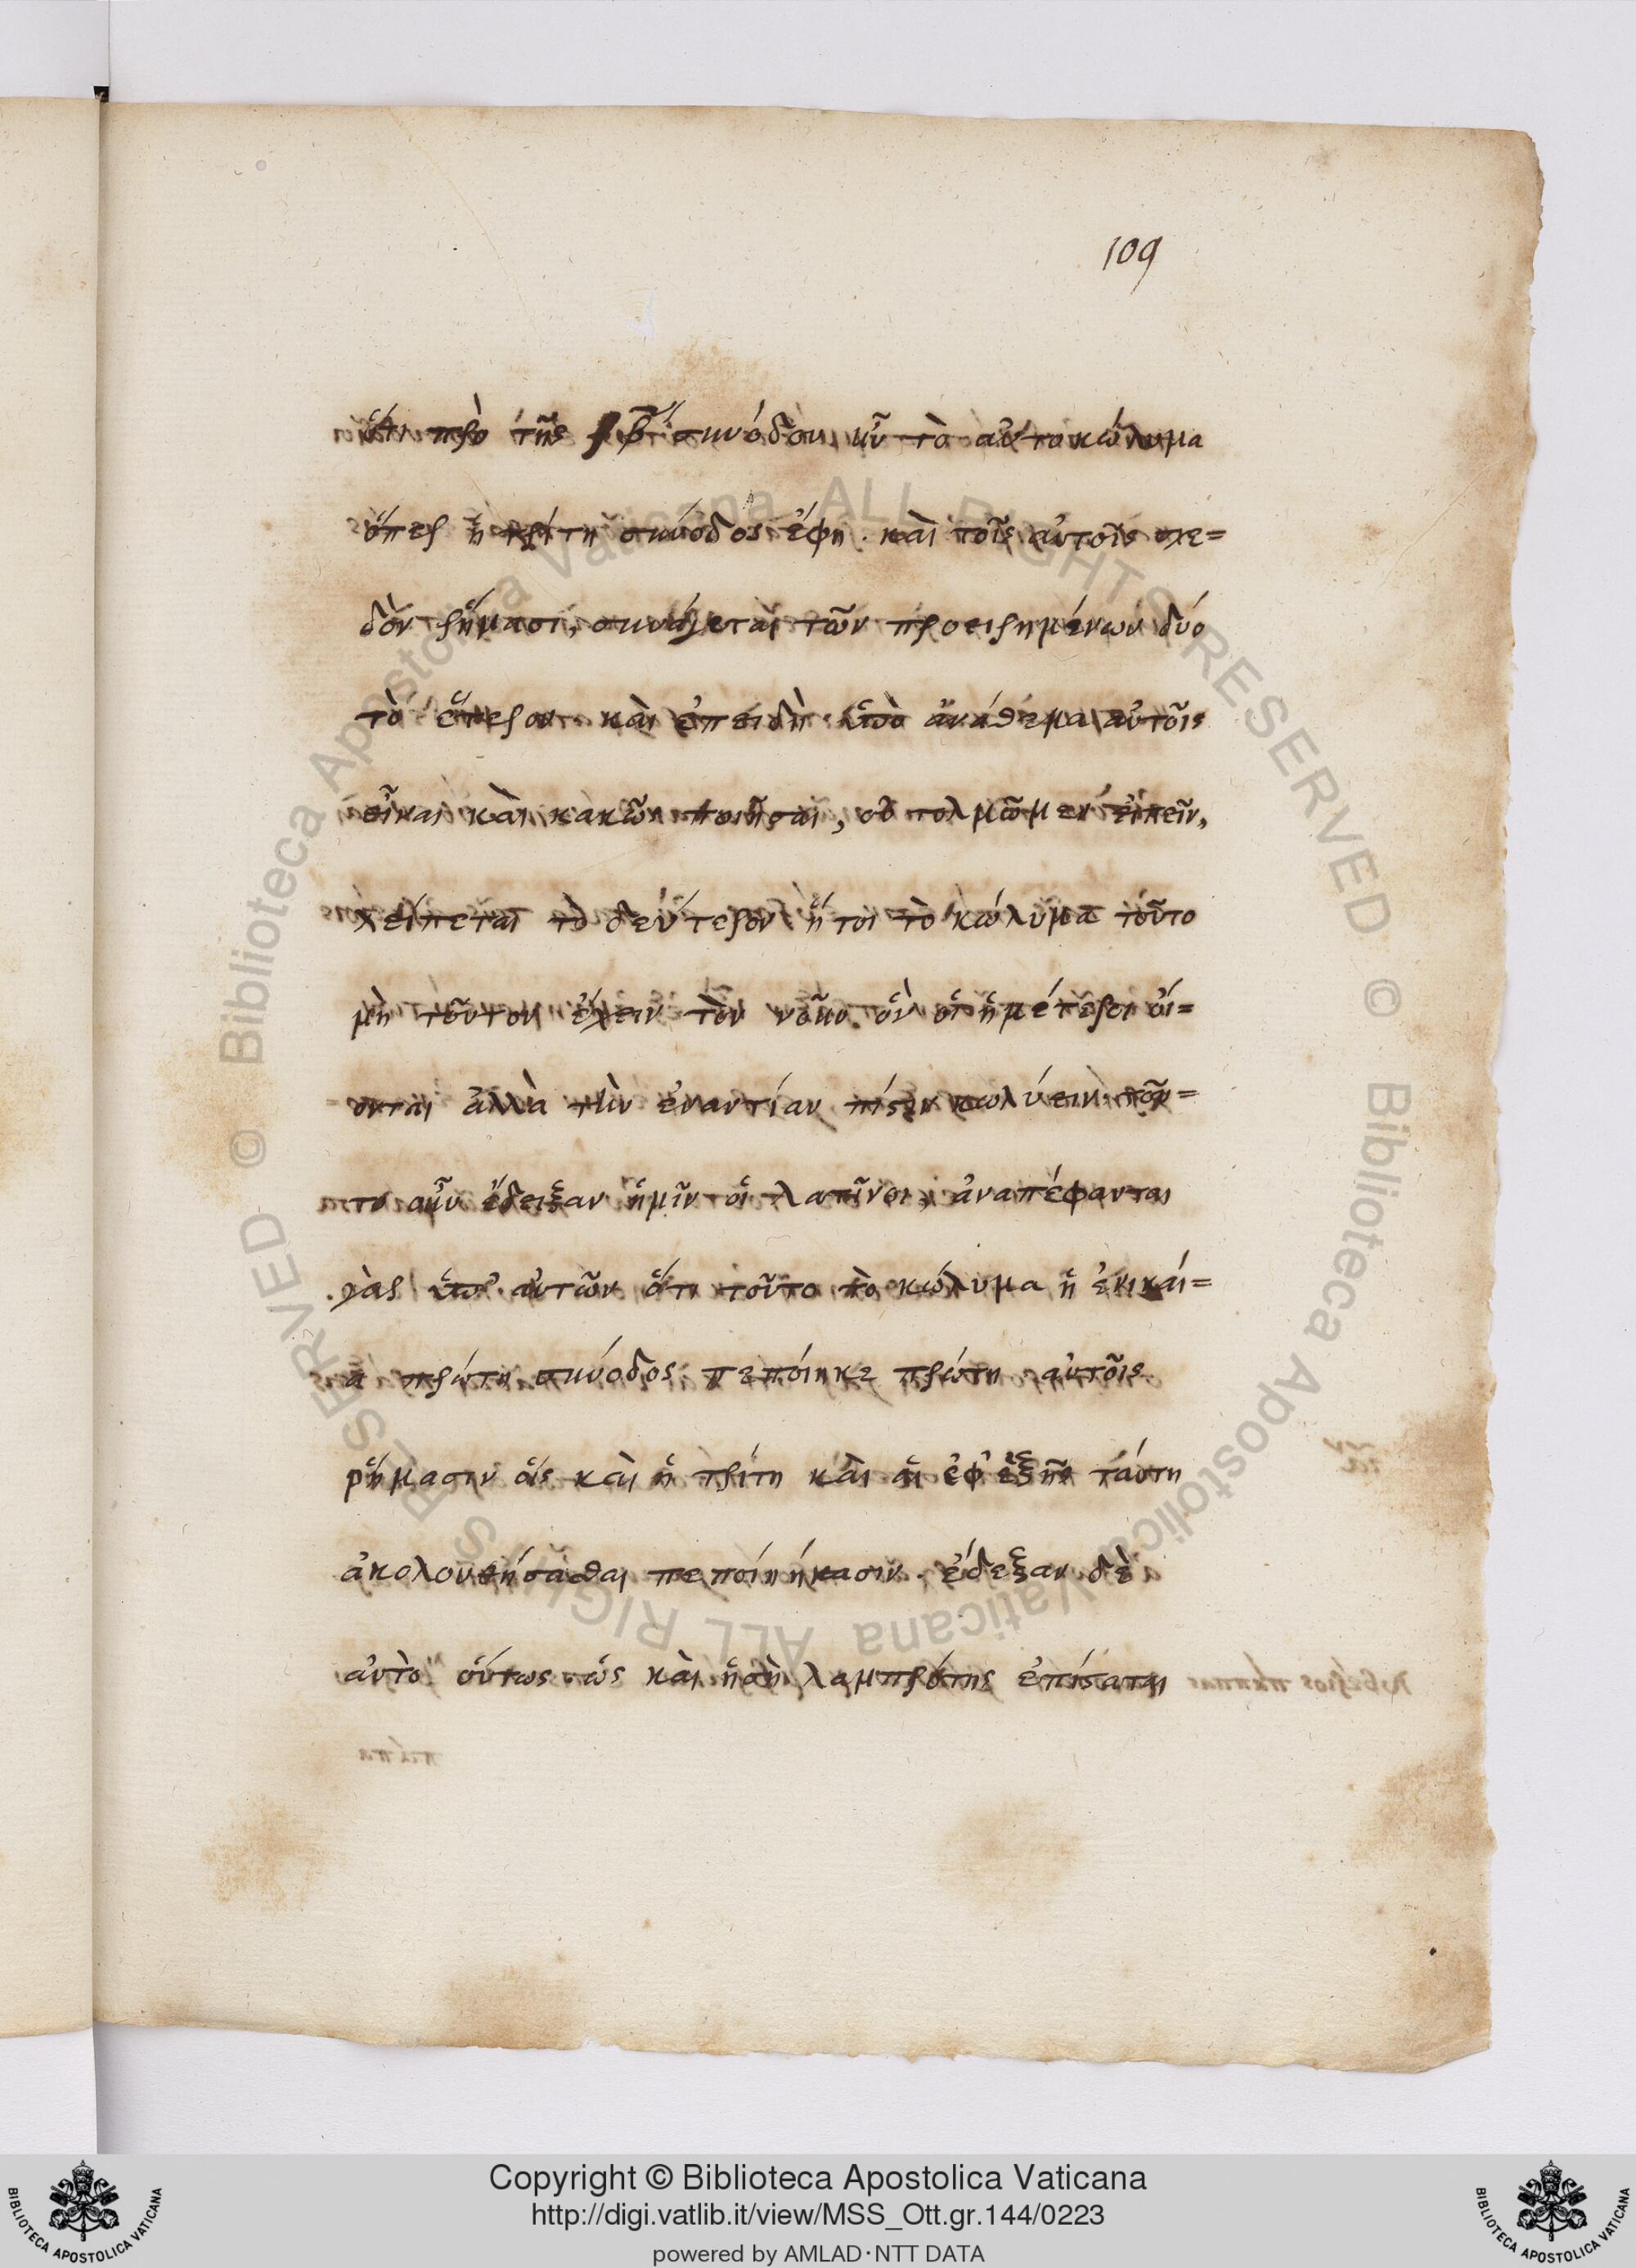 109
ὅτι πρὸ τῆς β συνόδου ἦν τὸ αὐτὸ κώλυμα
ὅπερ ἡ τρίτη σύνοδος ἔφη. καὶ τοῖς αὐτοῖς σχε=
δὸν ῥήμασι, συνάγεται τῶν προειρημένων δύο
τὸ ἕτερον καὶ ἐπειδὴ ὑπὸ ἀνάθεμα αὐτοῖς
εἶναι καὶ κακῶς ποιῆσαι, οὐ τολμῶμεν εἰπεῖν,
λείπεται τὸ δεύτερον ἤτοι τὸ κώλυμα τοῦτο
μὴ τοῦτον ἔχειν τὸν νοῦν. ὃν οἱ ἡμέτεροι οἴ=
ονται ἀλλὰ τὴν ἐναντίαν πίστιν κωλύειν. τοῦ=
το οὖν ἔδειξαν ἡμῖν οἱ λατῖνοι, ἀναπέφανται
γὰρ ὑπ' αὐτῶν ὅτι τοῦτο τὸ κώλυμα ἡ ἐνικαί=
α πρώτη σύνοδος πεποίηκε πρώτη αὐτοῖς
ῥήμασιν οἷς καὶ ἡ τρίτη καὶ αἱ ἐφ' ἑξῆς ταύτη
ἀκολουθήσασθαι πεποίηήκασιν. ἔδεξαν δὲ
αὐτὸ οὕτως ὡς καὶ ἡ σὴ λαμπρότης ἐπίσταται
Copyright © Biblioteca Apostolica Vaticana
http://digi.vatlib.it/view/MSS_Ott.gr.144/0223
powered by AMLAD·NTT DATA
BIBLIOTECA APOSTOLICA VATICANA
BIBLIOTECA APOSTOLICA VATICANA
© Biblioteca Apostolica Vaticana ALL RIGHTS RESERVED © Biblioteca Apostolica Vaticana ALL RIGHTS RESERVED